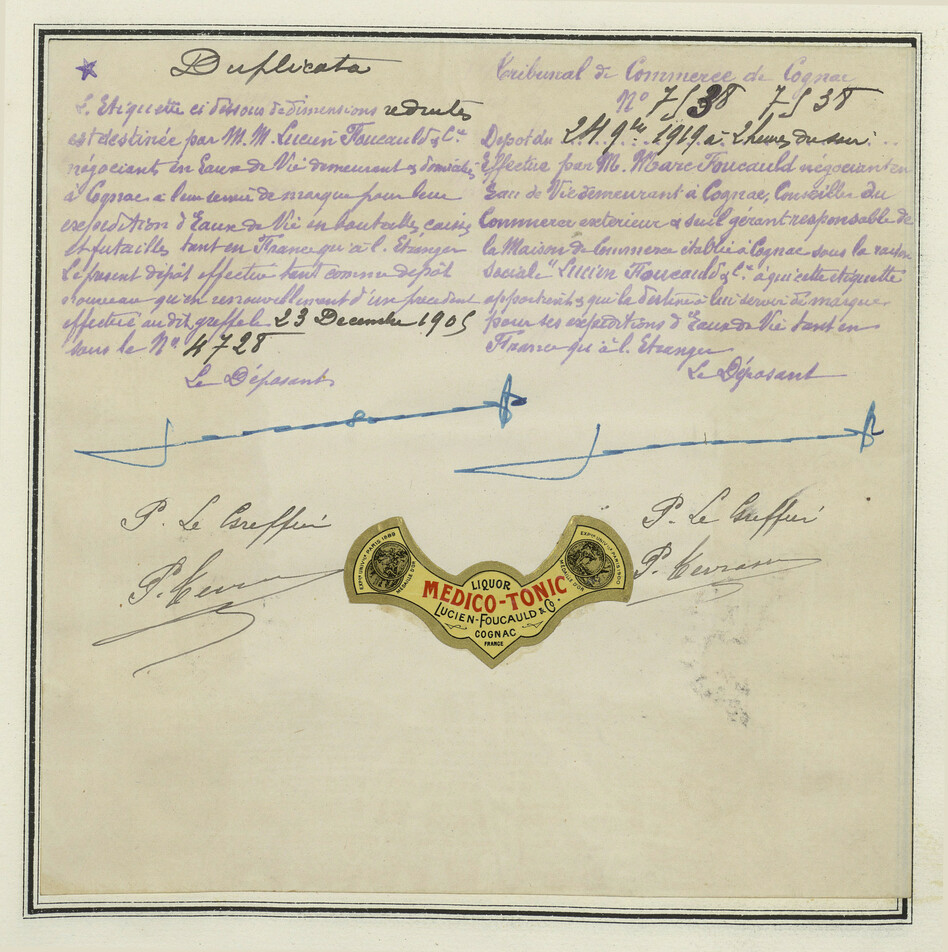 Duplicata
L'Etiquette ci dessous de dimensions reduites
est destinée par M.M. Lucien Foucauld & Cie
négociants en Eaux de Vie demeurant & domiciliés
à Cognac à leur servir de marque pour leur
expeditions d'Eaux de Vie en bouteilles, caisses
et futailles tant en France qu'à l'Etranger
Le présent dépôt effectué tant comme dépôt
nouveau qu'en renouvellement d'un precedent
effectué au dit greffe le 23 Decembre 1905
sous le No 4728
Le Déposant
Tribunal de Commerce de Cognac
No 7538 7538
Depot du 24 9bre 1919 à 2 heures du soir
Effectué par M. Marc Foucauld négociant en
Eau de Vie demeurant à Cognac, Conseiller du
Commerce exterieur & seul gérant responsable de
la Maison de Commerce établie à Cognac sous la raison
sociale "Lucien Foucauld & Cie" à qui cette etiquette
appartient & qui la destine à lui servir de marque
pour ses expéditions d'Eaux de Vie tant en
France qu'à l'Etranger
Le Déposant
P. Le Greffier
P. Le Greffier
EXPON UNIVLLE PARIS 1889
MEDAILLE D'OR
LIQUOR
MEDICO-TONIC
LUCIEN-FOUCAULD & Co.
COGNAC
FRANCE
EXPON UNIVLLE PARIS 1900
MEDAILLE D'OR